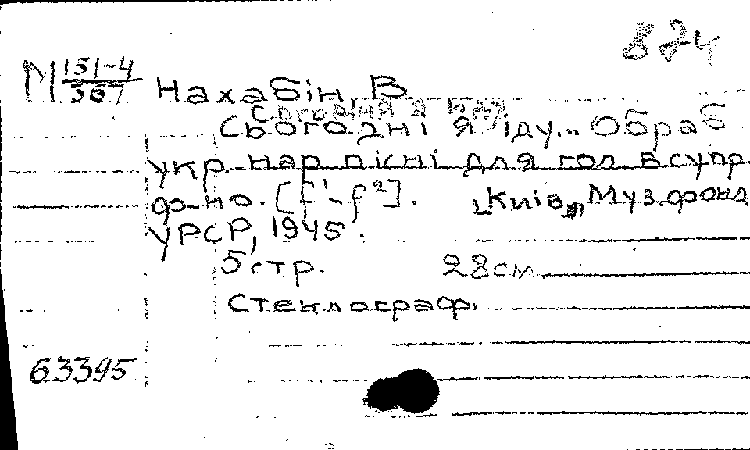 824
М 151-4/367 Нахабін, В
Сьогодні я іду... Обраб
укр. нар пісні для гол. в супр.
ф-но. [f'-f²]. [Київ], Муз.фонд
УРСР, 1945.
5 стр. 28 см
стеклограф.
63395